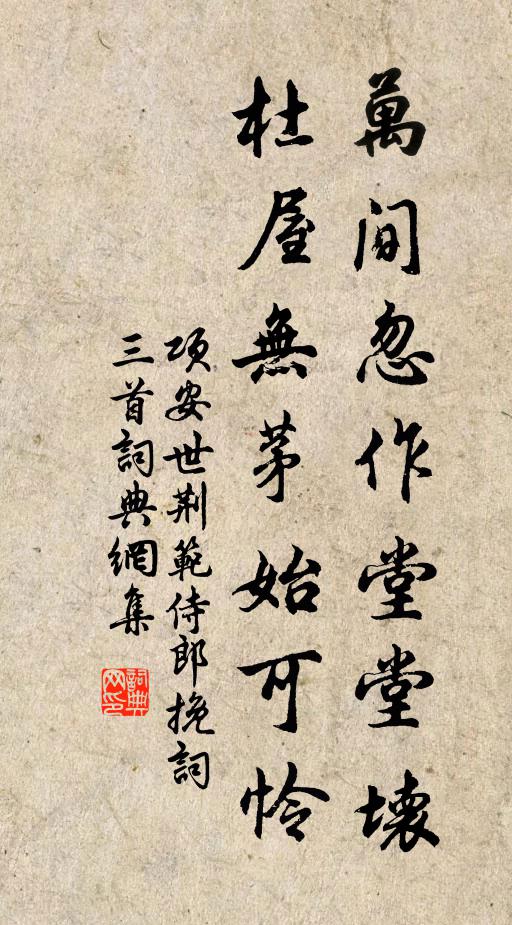 萬間忽作堂堂壞
杜屋無茅始可怜
项安世荆範侍郎挽詞
三首詞典網集
詞典
网印